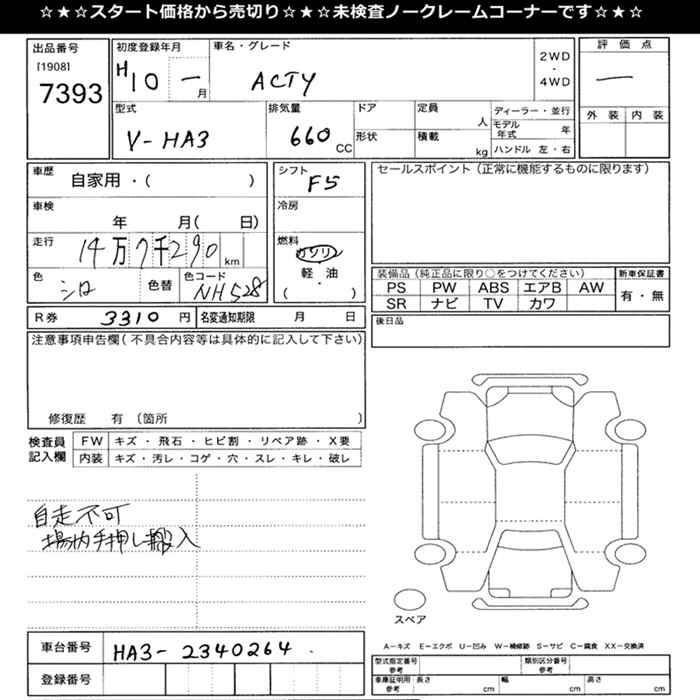 ☆★☆★スタート価格から売切り☆★☆★未検査ノークレームコーナーです☆★☆★
出品番号
[1908]
7393
初度登録年月
H10 - 月
車名・グレード
ACTY
2WD
・
4WD
評価点
―
外装 内装
型式
V-HA3
排気量
660 CC
ドア
形状
定員
人
積載
kg
ディーラー・並行
モデル年式 年
ハンドル 左・右
車歴
自家用・( )
車検
年 月( 日)
走行
14万7千290 km
色
シロ
色替
色コード
NH528
シフト
F5
冷房
燃料
ガソリン
軽油
・
( )
セールスポイント(正常に機能するものに限ります)
装備品(純正品に限り○をつけてください)
PS PW ABS エアB AW
SR ナビ TV カワ
新車保証書
有・無
R券 3310 円
名変通知期限 月 日
後日品
注意事項申告欄(不具合内容等は具体的に記入して下さい)
修復歴 有 (箇所 )
検査員記入欄
FW キズ・飛石・ヒビ割・リペア跡・X要
内装 キズ・汚レ・コゲ・穴・スレ・キレ・破レ
自走不可
場内手押し搬入
スペア
車台番号 HA3-2340264
登録番号
A－キズ E－エクボ U－凹み W－補修跡 S－サビ C－腐食 XX－交換済
型式指定番号
参考
類別区分番号
参考
車庫証明用
参考
長さ cm
幅 cm
高さ cm